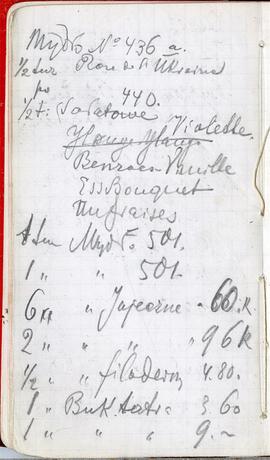 Mydło No 436 a.
1/2 tuz Rose de l'Ukraine
po
440.
1/2 t. Kwiatowe
Violette.
Ylang Ylang
Benzoes Vanille
Ess Bouquet
Mydł. 501.
1 " " 501.
6 " " Jajeczne - 60. k.
2 " " " 96 k
1/2 " filoderm 4.80.
1 " Buk. tatr. 3.60
1 " " " 9.~